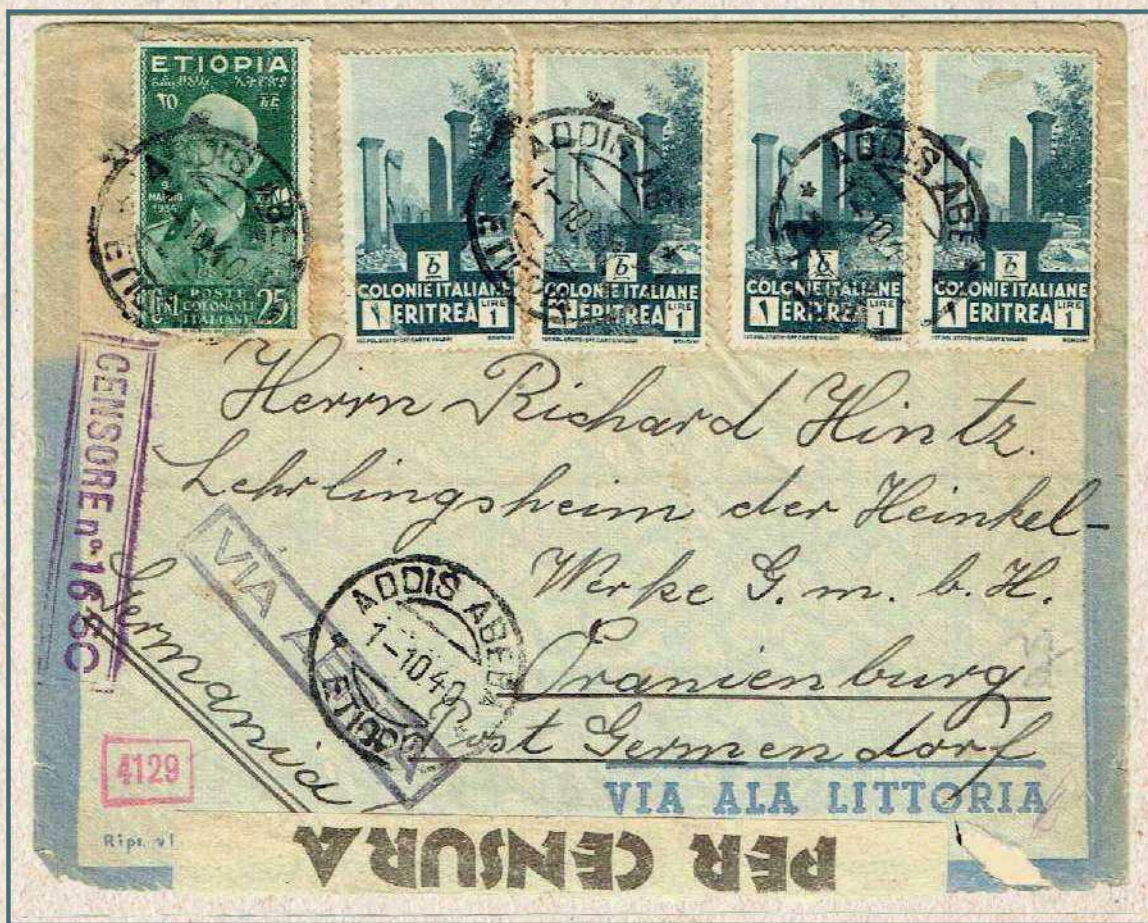 ETIOPIA
9
MAGGIO
1936
POSTE
COLONIALI
ITALIANE
25
b
COLONIE ITALIANE
ERITREA LIRE 1
b
COLONIE ITALIANE
ERITREA LIRE 1
b
COLONIE ITALIANE
ERITREA LIRE 1
b
COLONIE ITALIANE
ERITREA LIRE 1
ADDIS ABE
ADDIS ABE
ADDIS ABE
CENSORE nº 165C
Herrn Richard Hintz.
Lehrlingsheim der Heinkel-
Werke G. m. b. H.
Oranienburg
Post Germendorf
Germania
VIA
ADDIS ABEBA
1-10 40
4129
VIA ALA LITTORIA
PER CENSURA